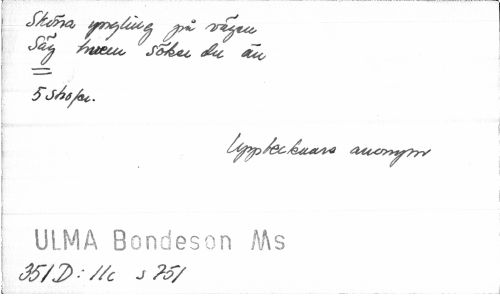 Sköna yngling på vägen
Säg hvem söker du än
5 strofer.
Upptecknare anonym
ULMA Bondeson Ms
351 D: 11c s 751